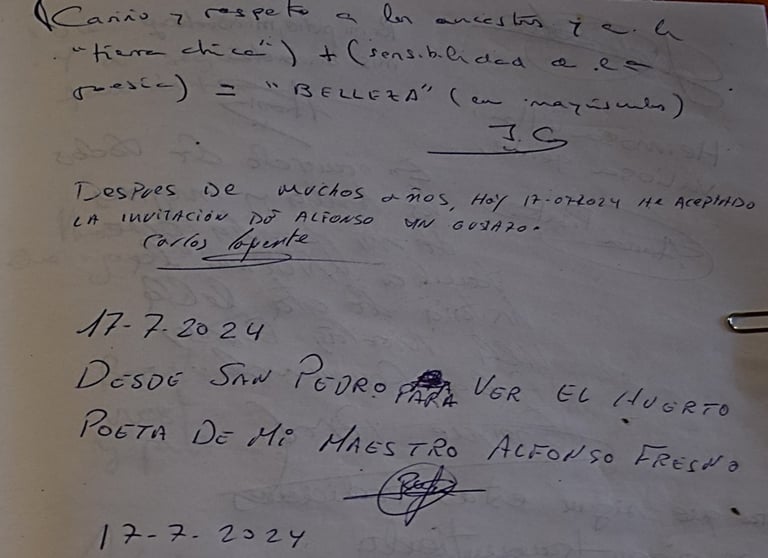 (Cariño y respeto a los ancestros y a la
"tierra chica") + (sensibilidad a la
poesía) = "BELLEZA" (en mayúsculas)
J.G
DESPUES DE MUCHOS AÑOS, HOY 17-072024 HE ACEPTADO
LA INVITACIÓN DE ALFONSO UN GUSTAZO.
Carlos
17-7-2024
DESDE SAN PEDRO PARA VER EL HUERTO
POETA DE Mi MAESTRO ALFONSO FRESNO
17-7-2024